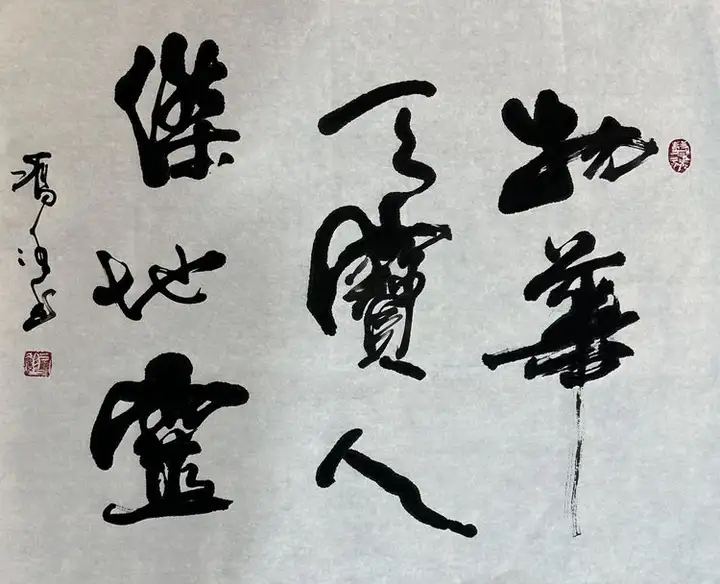 物華
天寶人
傑地靈